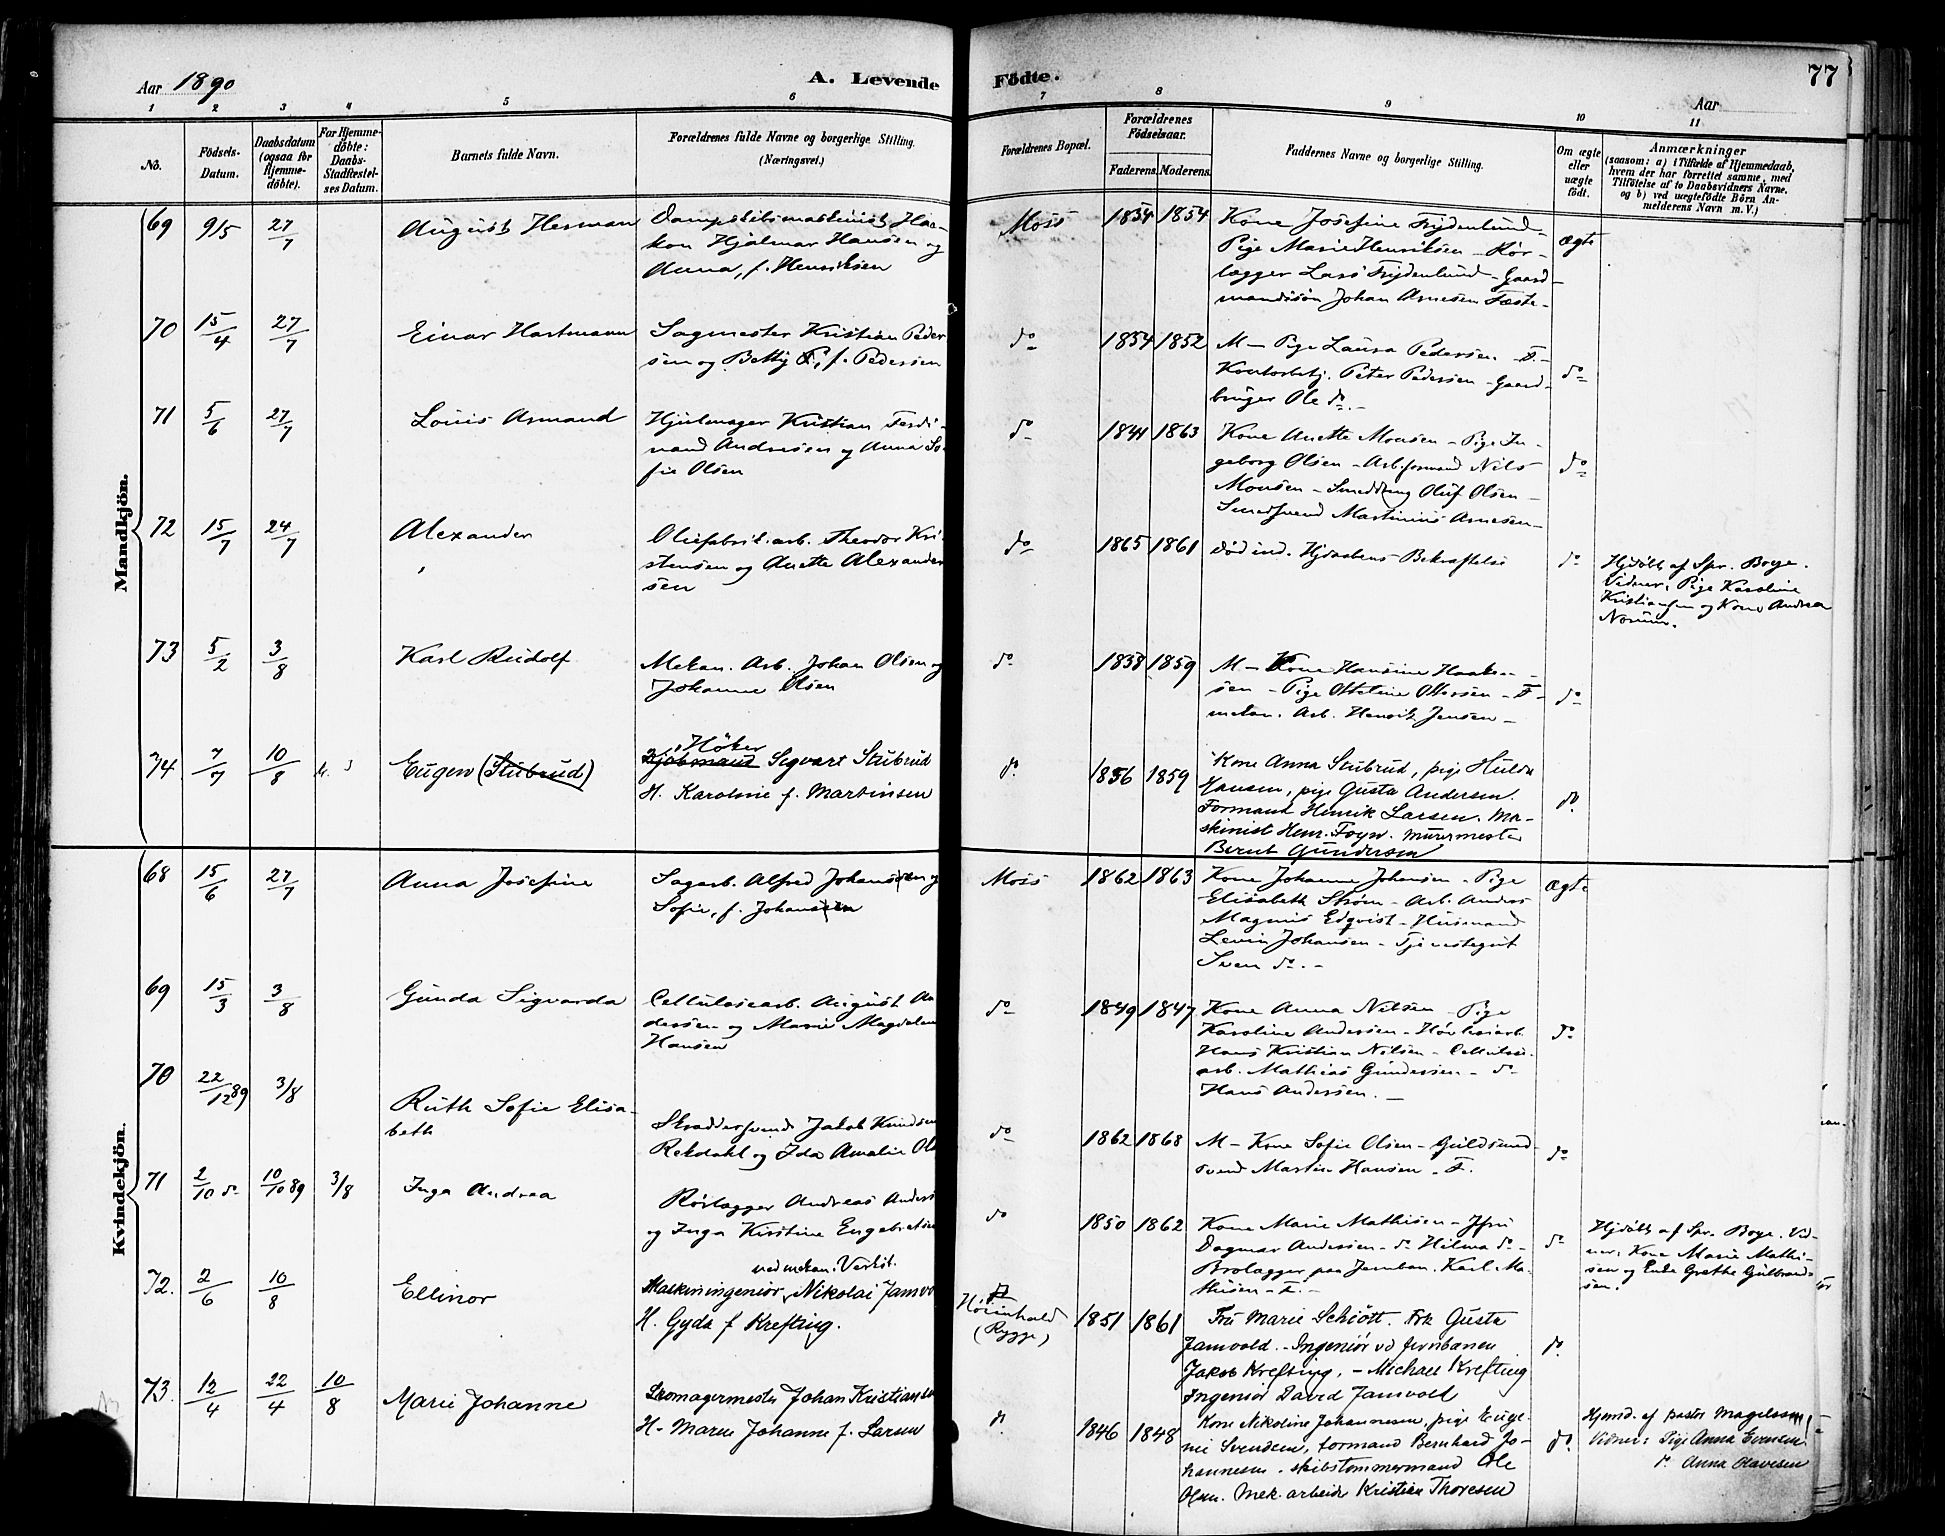 Aar 1890
A. Levende
Födte.
77
Aar
1 2 3 4 5 6 7 8 9 10 11
No.
Födsels-
Datum.
Daabsdatum
(ogsaa for
Hjemme-
döbte).
For Hjemme-
döbte:
Daabs-
Stadfæstel-
ses Datum.
Barnets fulde Navn.
Forældrenes fulde Navne og borgerlige Stilling.
(Næringsvei.)
Forældrenes Bopæl.
Forældrenes
Födselsaar.
Faderens. Moderens.
Faddernes Navne og borgerlige Stilling.
Om ægte
eller
uægte
födt.
Anmærkninger
(saasom: a) i Tilfælde af Hjemmedaab,
hvem der har forrettet samme, med
Tilföielse af to Daabsvidners Navne.
og b) ved uægtefödte Börn An-
melderens Navn m. V.)
Mandkjön.
69 9/5 27/7 August Herman
Dampskibsmaskinist Haa-
kon Hjalmar Hansen og
Anna, f. Henriksen
Moss 1854 1854
Kone Josefine Frydenlund -
Pige Marie Henriksen - Rör-
lægger Lars Frydenlund - Gaard-
mandssön Johan Arnesen Fæste-
ægte
70 15/4 27/7 Einar Hartmann
Sagmester Kristian Peder-
sen og Betty P., f. Pedersen
do 1854 1852
M - Pige Laura Pedersen - F. -
Kontorbetj. Peter Pedersen - Gaard-
bruger Ole do. -
do
71 5/6 27/7 Louis Armand
Hjulmager Kristian Ferdi-
nand Andersen og Anna So-
fie Olsen
do 1841 1863
Kone Anette Monsen - Pige In-
geborg Olsen - Arb.formand Nils
Monsen - Smed Oluf Olsen -
Smedsvend Martinius Arnesen -
do
72 15/7 24/7 Alexander
Oliefabrik.arb. Theodor Kri-
stensen og Anette Alexander-
sen
do 1865 1861
död ind. Hjdaabens Bekræftelse
do
Hjdöbt af Spr. Boye.
Vidner: Pige Karoline
Kristiansen og Kone Andrea
Norum.
73 5/2 3/8 Karl Rudolf
Mekan. Arb. Johan Olsen og
Johanne Olsen
do 1858 1859
M - Kone Hansine Haak-
sen - Pige Otteline Ottersen - F -
mekan. Arb. Henrik Jensen -
do
74 7/7 10/8 Eugen (Stubrud)
Höker
Kjöbmand Sigvart Stubrud
H. Karoline f. Martinsen
do. 1856 1859
Kone Anna Stubrud, pige Hulda
Hansen, pige Gusta Andersen.
Formand Henrik Larsen. Ma-
skinist Henr. Foyn. murermester
Bernt Gundersen
do.
Kvindekjön.
68 15/6 27/7 Anna Josefine
Sagarb. Alfred Johansen og
Sofie, f. Johansen
Moss 1862 1863
Kone Johanne Johansen - Pige
Elisabeth Ström - Arb. Anders
Magnus Edqvist - Husmand
Levin Johansen - Tjenestegut
Sven do. -
ægte
69 15/3 3/8 Gunda Sigvarda
Cellulosearb. August An-
dersen og Marie Magdalene
Hansen
do 1849 1847
Kone Anna Nilsen - Pige
Karoline Andersen - Hövleriarb.
Hans Kristian Nilsen - Cellulose-
arb. Mathias Gundersen - do
Hans Andersen. -
do
70 22/12 89 3/8 Ruth Sofie Elisa-
beth
Skræddersvend Jakob Knudsen
Rekdahl og Ida Amalie Ol
do 1862 1868
M - Kone Sofie Olsen - Guldsmed-
svend Martin Hansen - F.
do
71 2/10 do 10/10 89 3/8 Inga Andrea
Rörlægger Andreas Anders
og Inga Kirstine Engebretsen
do 1850 1862
Kone Marie Mathisen - Jfru
Dagmar Andersen - do Hilma do -
Brolægger paa Jernban. Karl Ma-
thisen - F. -
do
Hjdöbt af Spr. Boye. Vid-
ner: Kone Marie Mathi-
sen og Enke Grethe Gulbrand-
sen.
72. 2/6 10/8 Ellinor
ved mekan. Verkst.
Maskiningeniör, Nikolai Jamvo
H. Gyda f Krefting.
(Rygge) 1851 1861
Fru Marie Schiött. Frk Gusta
Jamvold. - Ingeniör vd jernbanen
Jakob Krefting, - Michael Krefting
Ingeniör David Jamvold
do.
73. 12/4 22/4 10/8 Marie Johanne
Skomagermester Johan Kristiansen
H. Maren Johanne f. Larsen
do. 1846 1848
Kone Nikoline Johannesen, pige Euge-
nie Svendsen, formand Bernhard Jo-
hannesen. skibstömmermand Ole
Olsen. Mek. arbeider Kristian Thoresen
do.
Hjemd. af pastor Magelssen
Vidner: Pige Anna Evensen
do. Anna Olavesen